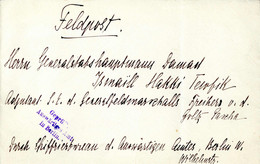 Feldpost.
Herrn Generalstabshauptmann Damad
Ismaill Hakki Tewfik
Adjutant S.E. des Generalfeldmarschalls Freiherrn v. d.
Goltz Pascha
Durch Chiffrierbureau des Auswärtigen Amtes, Berlin W.
Wilhelmstr.